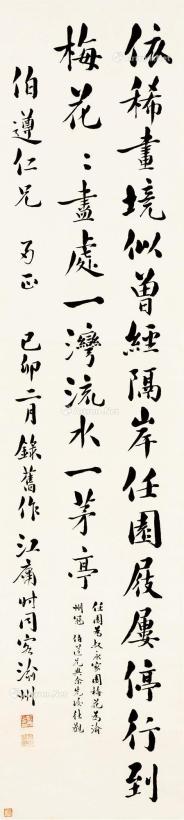 依稀畫境似曾經隔岸任園屐屢停行到
梅花〻盡處一灣流水一茅亭
任園爲叔永家園梅花爲渝
州冠伯遵兄與余先後往觀
伯遵仁兄 方正 己卯二月錄舊作江庸時同客渝州